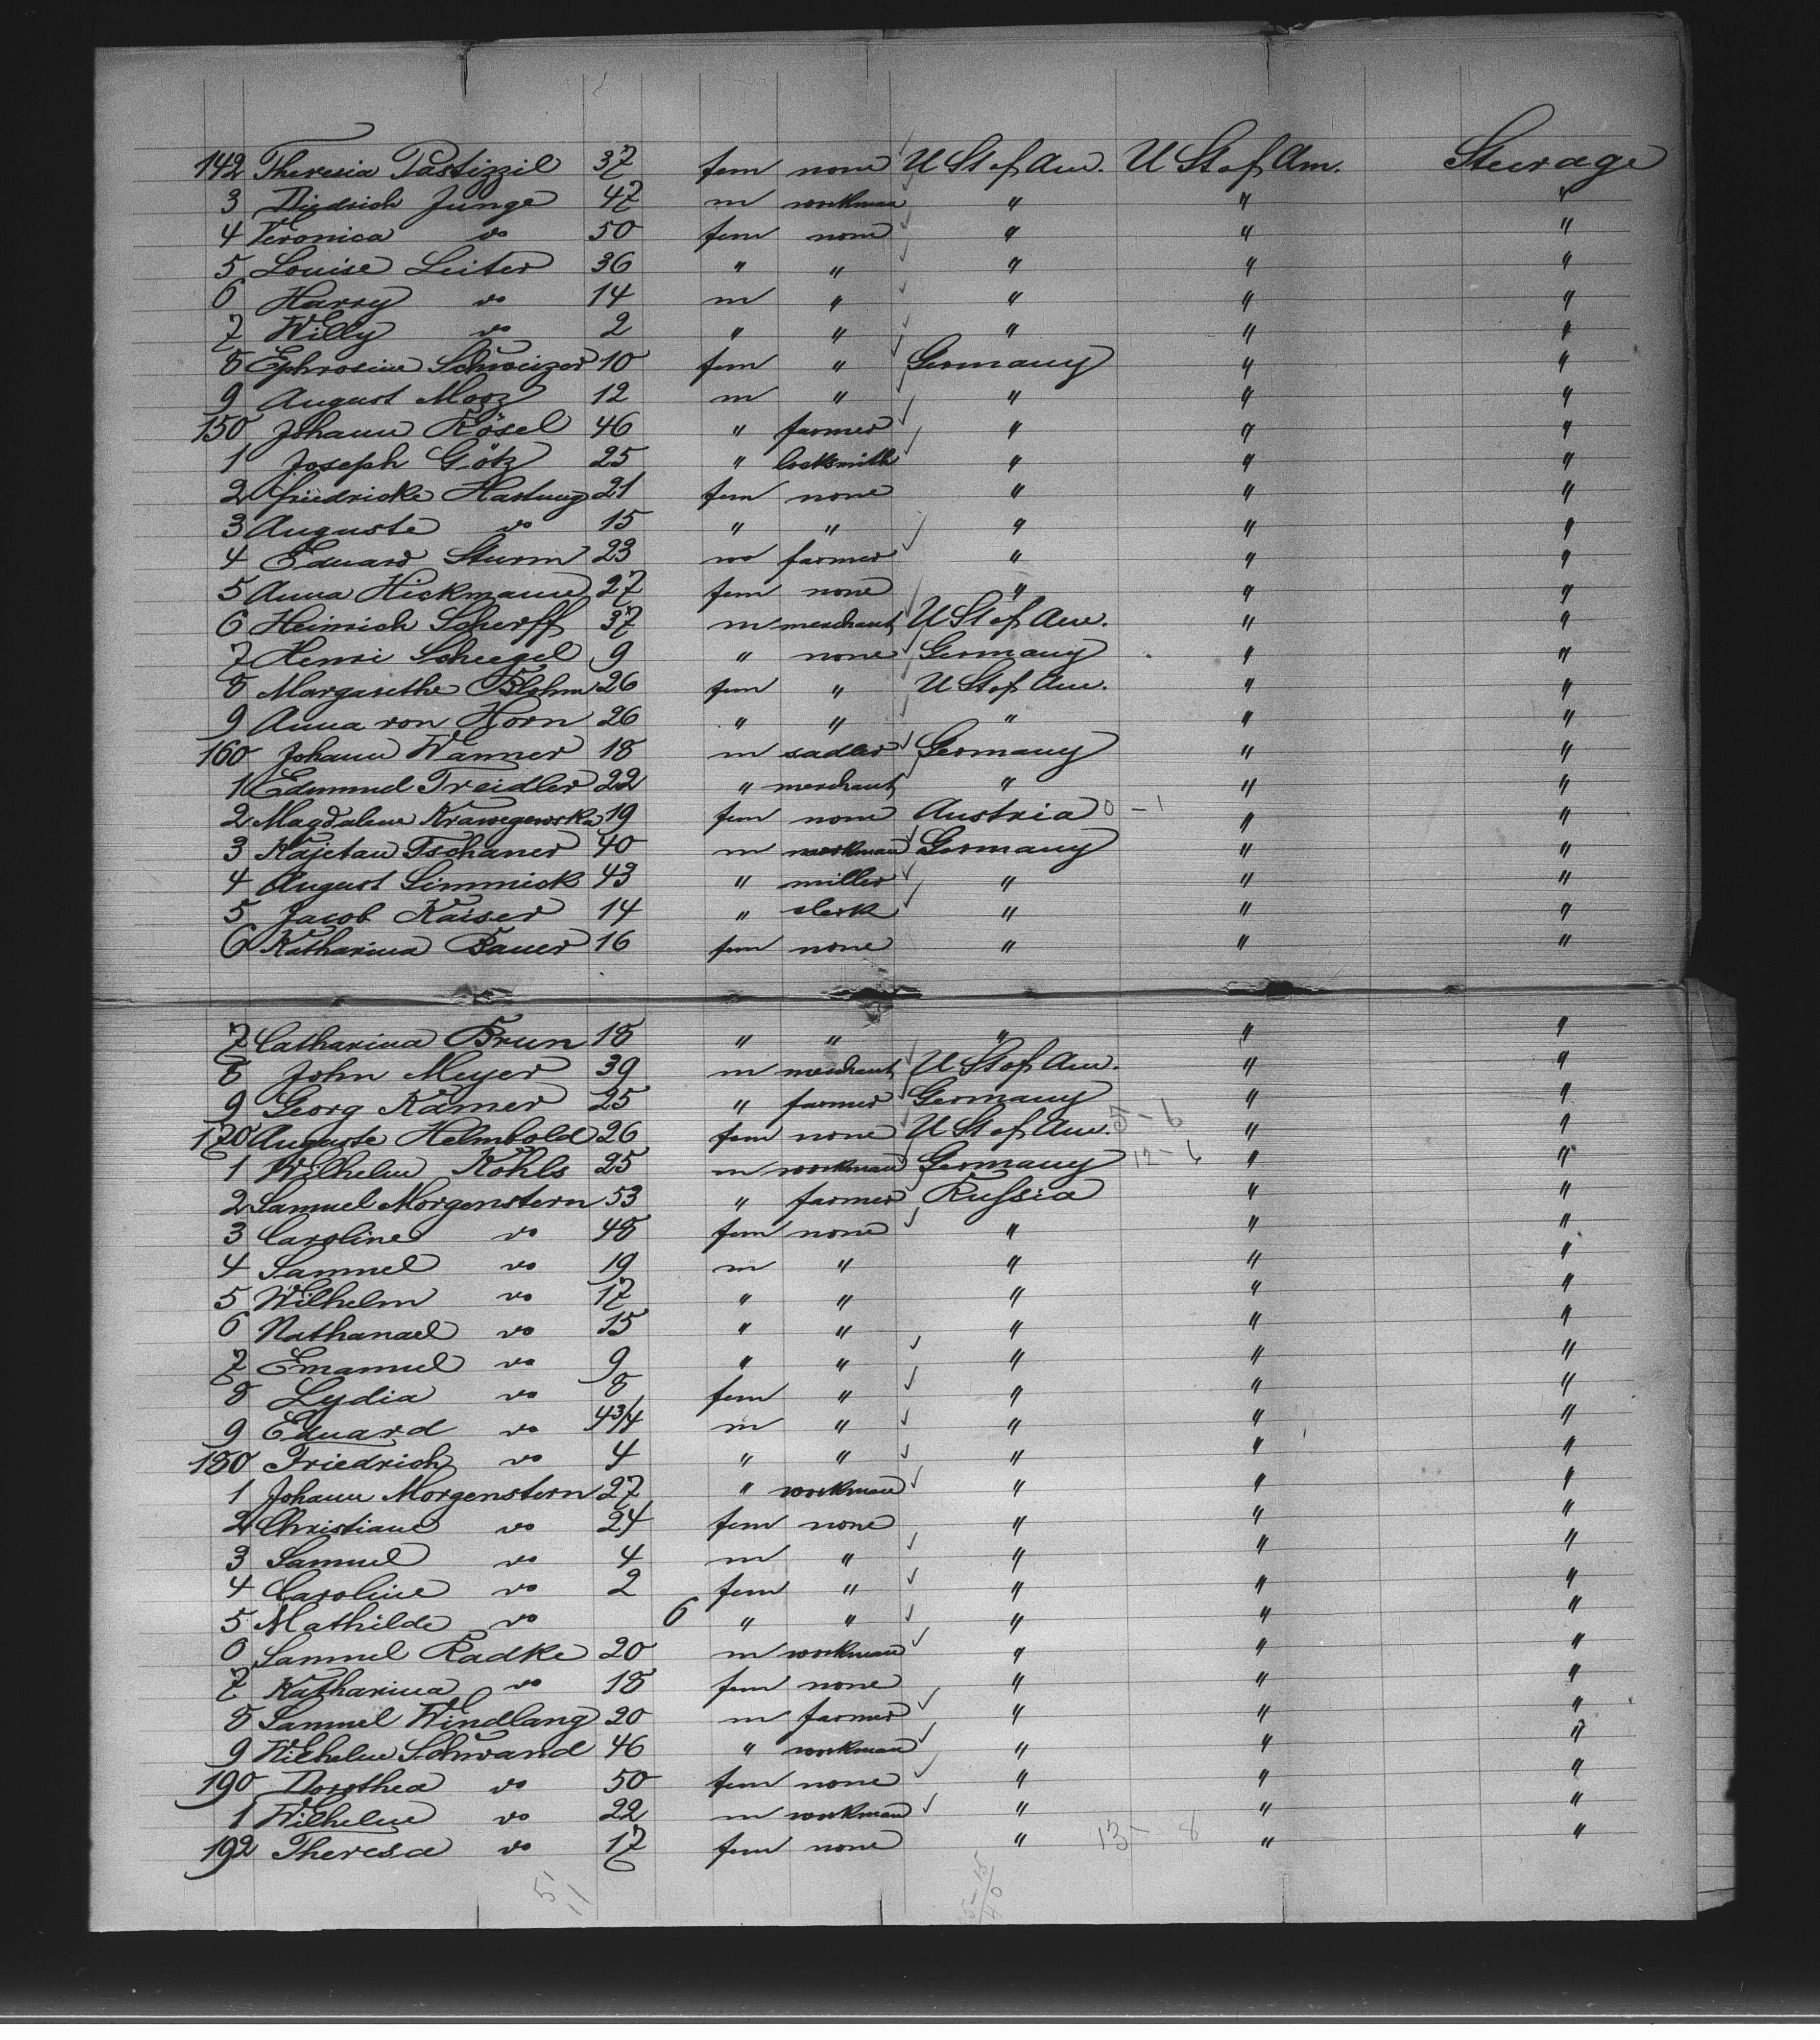 142 Theresia Pastizzil 37 fem none U St of Am. U St of Am. Steerage
3 Diedrich Junge 47 m workman " " "
4 Veronica do 50 fem none " " "
5 Louise Leiter 36 " " " " "
6 Harry do 14 m " " " "
7 Willy do 2 " " " " "
8 Ephrosine Schweizer 10 fem " Germany " "
9 August Mooz 12 m " " " "
150 Johann Rösel 46 " farmer " " "
1 Joseph Götz 25 " locksmith " " "
2 Friedricke Hartung 21 fem none " " "
3 Auguste do 15 " " " " "
4 Eduard Sturm 23 m farmer " " "
5 Anna Hickmann 27 fem none " " "
6 Heinrich Scherff 37 m merchant U St of Am. " "
7 Henri Scheegel 9 " none Germany " "
8 Margarethe Blohm 26 fem " U St of Am. " "
9 Anna von Horn 26 " " " " "
160 Johann Wanner 18 m sadler Germany " "
1 Edmund Treidler 22 " merchant " " "
2 Magdalene 19 fem none Austria 0 - 1 " "
3 Kajetan Tschaner 40 m workman Germany " "
4 August Simmick 43 " miller " " "
5 Jacob Kaiser 14 " clerk " " "
6 Katharina Bauer 16 fem none " " "
7 Catharina Brun 18 " " " " "
8 John Meyer 39 m merchant U St of Am. " "
9 Georg Kämer 25 " farmer Germany " "
170 Auguste Helmbold 26 fem none U St of Am. 5 - 6 " "
1 Wilhelm Kohls 25 m workman Germany 12 - 6 " "
2 Samuel Morgenstern 53 " farmer Russia " "
3 Caroline do 48 fem none " " "
4 Samuel do 19 m " " " "
5 Wilhelm do 17 " " " " "
6 Nathanael do 15 " " " " "
7 Emanuel do 9 " " " " "
8 Lydia do 8 fem " " " "
9 Eduard do 4 3/4 m " " " "
180 Friedrich do 4 " " " " "
1 Johann Morgenstern 27 " workman " " "
2 Christiane do 24 fem none " " "
3 Samuel do 4 m " " " "
4 Caroline do 2 fem " " " "
5 Mathilde do 6 " " " " "
6 Samuel Radke 20 m workman " " "
7 Katharina do 18 fem none " " "
8 Samuel Windlang 20 m farmer " " "
9 Wilhelm Schwand 46 " workman " " "
190 Dorothea do 50 fem none " " "
1 Wilhelm do 22 m workman " " "
192 Theresa do 17 fem none " 13 - 8 " "
51